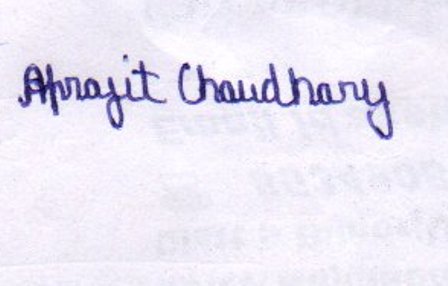 Aprajit Chaudhary